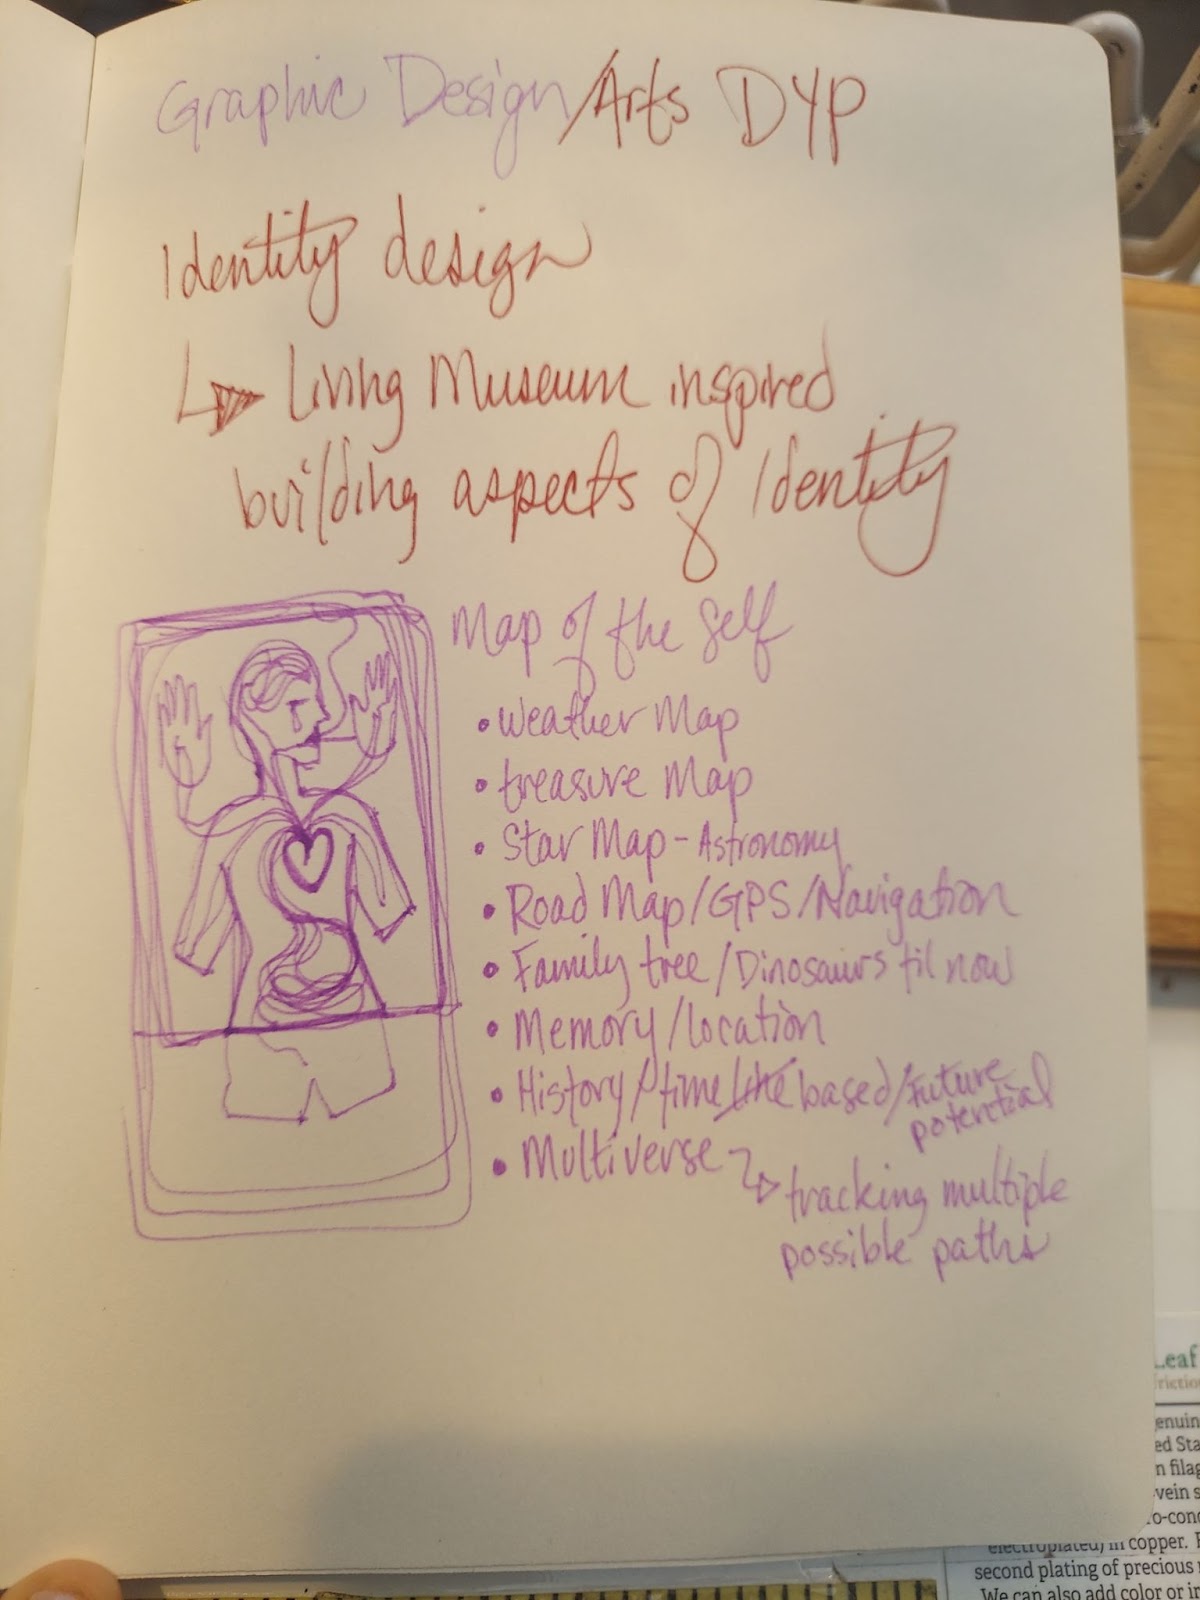 Graphic Design/Arts DYP
Identity design
Living Museum inspired
building aspects of Identity
Map of the Self
• Weather Map
• treasure Map
• Star Map - Astronomy
• Road Map/GPS/Navigation
• Family tree/Dinosaurs til now
• Memory/location
• History/time line based/Future
potential
• Multiverse
tracking multiple
possible paths
Leaf
frictio
genuin
ed Sta
n filag
-vein s
o-cond
electroplated) in copper.
second plating of precious
We can also add color or